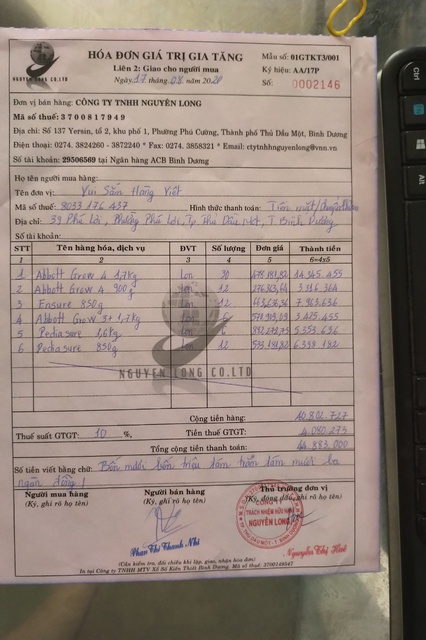 HÓA ĐƠN GIÁ TRỊ GIA TĂNG
Liên 2: Giao cho người mua
Ngày 17 tháng 08 năm 2020
Mẫu số: 01GTKT3/001
Ký hiệu: AA/17P
Số: 0002146
NGUYEN LONG CO.LTD
Đơn vị bán hàng: CÔNG TY TNHH NGUYÊN LONG
Mã số thuế: 3700817949
Địa chỉ: Số 137 Yersin, tổ 2, khu phố 1, Phường Phú Cường, Thành phố Thủ Dầu Một, Bình Dương
Điện thoại: 0274. 3824260 - 3872240 * Fax: 0274. 3858321 * Email: ctytnhhnguyenlong@vnn.vn
Số tài khoản: 29506569 tại Ngân hàng ACB Bình Dương
Họ tên người mua:
Tên đơn vị: Vui Sắm Hàng Việt
Mã số thuế: Hình thức thanh toán: Tiền mặt/
Địa chỉ: 39 Phú Lợi, Phường Phú Lợi, Tp Thủ Dầu Một, T Bình Dương
Số tài khoản:
STT Tên hàng hóa, dịch vụ ĐVT Số lượng Đơn giá Thành tiền
1 2 3 4 5 6=4x5
1 Abbott Grow 4 1,7kg Lon 30 478.181,82 14.345.455
2 Abbott Grow 4 900g Lon 12 276.363,64 3.316.364
3 Ensure 850g Lon 12 663.636,36 7.963.636
4 Abbott Grow 3+ 1,7kg Lon 6 3.425.455
5 Pediasure 1,6kg Lon 6 892.272,73 5.353.636
6 Pediasure 850g Lon 12 533.181,82 6.398.182
NGUYEN LONG CO.LTD
Cộng tiền hàng: 40.802.727
Thuế suất GTGT: 10 %, Tiền thuế GTGT: 4.080.273
Tổng cộng tiền thanh toán: 44.883.000
Số tiền viết bằng chữ: Bốn mươi bốn triệu tám trăm tám mươi ba
ngàn đồng
Người mua hàng Người bán hàng Thủ trưởng đơn vị
(Ký, ghi rõ họ tên) (Ký, ghi rõ họ tên) (Ký, đóng dấu, ghi rõ họ tên)
CÔNG TY
TRÁCH NHIỆM HỮU HẠN
NGUYÊN LONG
Phan Thị Thanh Nhi Nguyễn Thị Huê
(Cần kiểm tra, đối chiếu khi lập, giao, nhận hóa đơn)
Ctrl
Alt